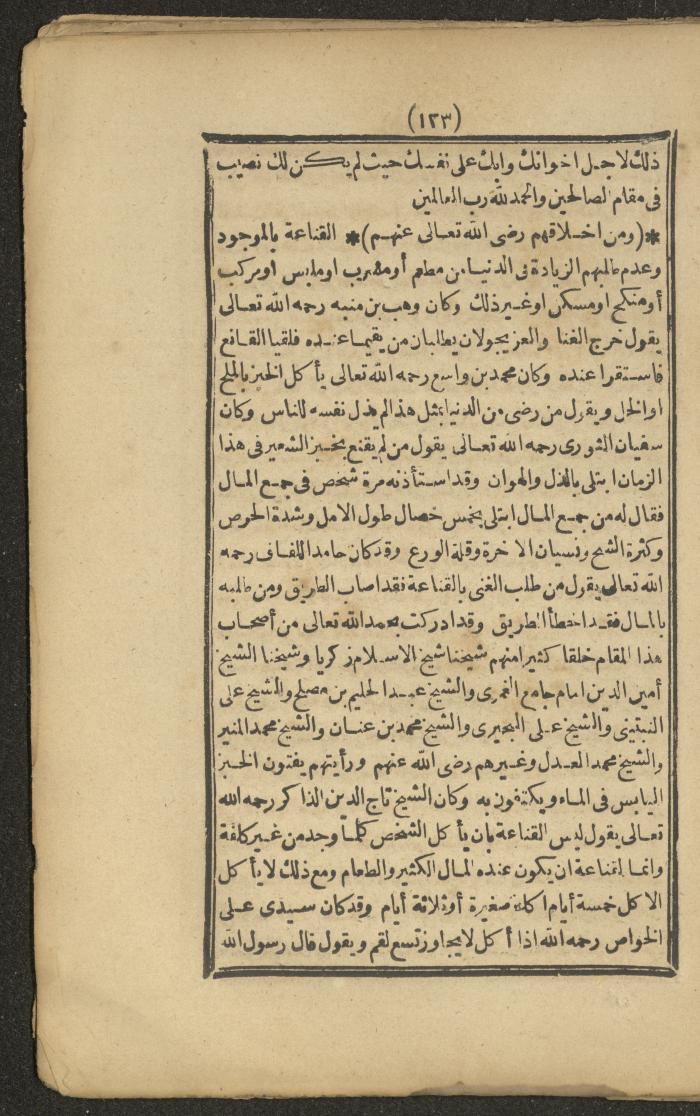 (١٢٣)
ذلك لاجل اخوانك وابك على نفسك حيث لم يكن لك نصيب
فى مقام الصالحين والحمد لله رب العالمين
*(ومن اخلاقهم رضى الله تعالى عنهم)* القناعة بالموجود
وعدم طلبهم الزيادة فى الدنيا من مطعم أومشرب اوملبس اومركب
أومنكح اومسكن اوغير ذلك وكان وهب بن منبه رحمه الله تعالى
يقول خرج الغنا والعز يجولان يطلبان من يقيما عنده فلقيا القانع
فاستقرا عنده وكان محمد بن واسع رحمه الله تعالى يأكل الخبز بالملح
اوالخل ويقول من رضى من الدنيا بمثل هذا لم يذل نفسه للناس وكان
سفيان الثورى رحمه الله تعالى يقول من لم يقنع بخبز الشعير فى هذا
الزمان ابتلى بالذل والهوان وقد استأذنه مرة شخص فى جمع المال
فقال له من جمع المال ابتلى بخمس خصال طول الامل وشدة الحرص
وكثرة الشح ونسيان الاخرة وقلة الورع وقد كان حامد اللفاف رحمه
الله تعالى يقول من طلب الغنى بالقناعة فقد اصاب الطريق ومن طلبه
بالمال فقد اخطأ الطريق وقد ادركت بحمد الله تعالى من أصحاب
هذا المقام خلقا كثيرا منهم شيخنا شيخ الاسلام زكريا وشيخنا الشيخ
أمين الدين امام جامع الغمرى والشيخ عبد الحليم بن مصلح والشيخ على
النبتيتى والشيخ على البحيرى والشيخ محمد بن عنان والشيخ محمد المنير
والشيخ محمد العدل وغيرهم رضى الله عنهم ورأيتهم يفتون الخبز
اليابس فى الماء ويكتفون به وكان الشيخ تاج الدين الذاكر رحمه الله
تعالى يقول ليس القناعة بان يأكل الشخص كلما وجد من غير كلفة
وانما القناعة ان يكون عنده المال الكثير والطعام ومع ذلك لا يأكل
الا كل خمسة أيام اكلة صغيرة أو ثلاثة أيام وقد كان سيدى على
الخواص رحمه الله اذا أكل لا يجاوز تسع لقم ويقول قال رسول الله